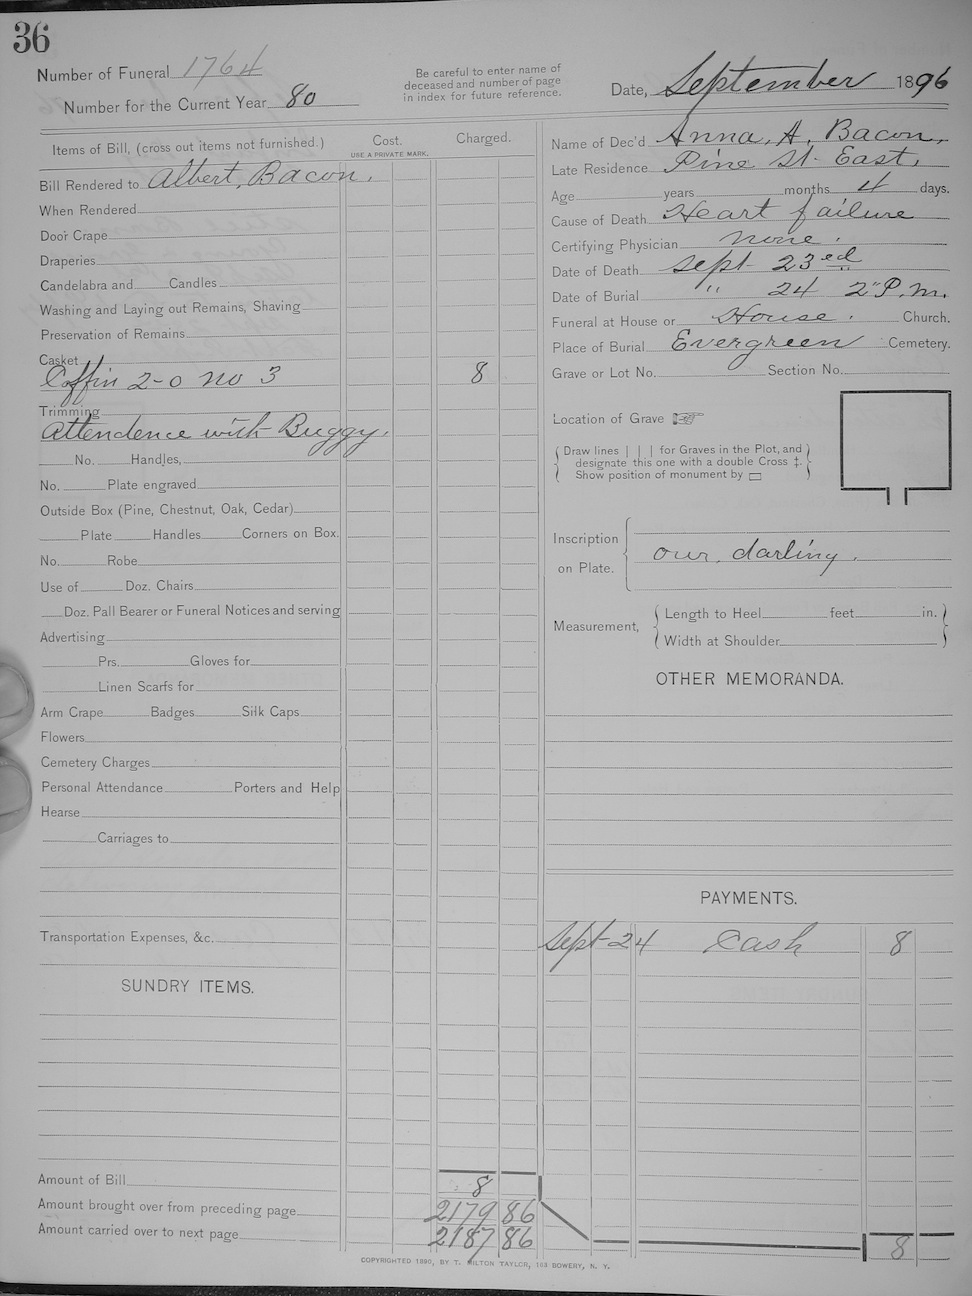 36
Number of Funeral 1764
Number for the Current Year 80
Be careful to enter name of
deceased and number of page
in index for future reference.
Date, September 1896
Items of Bill, (cross out items not furnished.)
Cost.
USE A PRIVATE MARK.
Charged.
Bill Rendered to Albert, Bacon.
When Rendered
Door Crape
Draperies
Candelabra and Candles
Washing and Laying out Remains, Shaving
Preservation of Remains
Casket
Coffin 2-0 no 3 8
Trimming
Attendence with Buggy.
No. Handles,
No. Plate engraved
Outside Box (Pine, Chestnut, Oak, Cedar)
Plate Handles Corners on Box.
No. Robe
Use of Doz. Chairs
Doz. Pall Bearer or Funeral Notices and serving
Advertising
Prs. Gloves for
Linen Scarfs for
Arm Crape Badges Silk Caps
Flowers
Cemetery Charges
Personal Attendance Porters and Help
Hearse
Carriages to
Transportation Expenses, &c.
SUNDRY ITEMS.
Amount of Bill 8
Amount brought over from preceding page 2179 86
Amount carried over to next page 2187 86
Name of Dec'd Anna, A, Bacon,
Late Residence Pine St. East,
Age years months 4 days.
Cause of Death Heart failure
Certifying Physician none.
Date of Death Sept 23ed
Date of Burial " 24 2" P.m.
Funeral at House or House. Church.
Place of Burial Evergreen Cemetery.
Grave or Lot No. Section No.
Location of Grave ☞
Draw lines | | | for Graves in the Plot, and
designate this one with a double Cross ‡.
Show position of monument by ▭
Inscription
on Plate.
our, darling.
Measurement,
Length to Heel feet in.
Width at Shoulder
OTHER MEMORANDA.
PAYMENTS.
Sept 24 Cash 8
8
COPYRIGHTED 1890, BY T. MILTON TAYLOR, 163 BOWERY, N. Y.